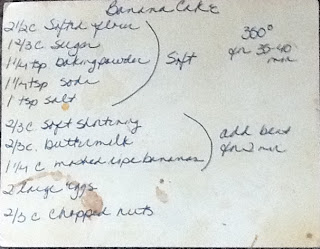 Banana Cake
2 1/2 c Sifted flour
1 2/3 c Sugar
1 1/4 tsp Baking powder
1 1/4 tsp soda
1 tsp salt
Sift
350°
for 35-40
min
2/3 c Soft shortening
2/3 c. Buttermilk
1 1/4 c mashed ripe bananas
add beat
for 2 min
2 large eggs
2/3 c chopped nuts